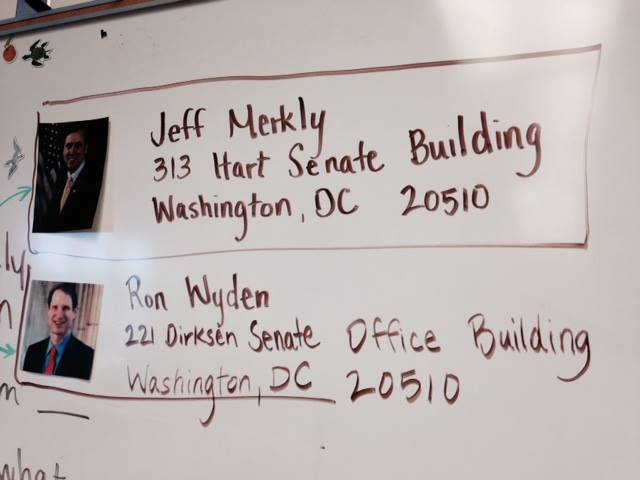 Jeff Merkly
313 Hart Senate Building
Washington, DC 20510
Ron Wyden
221 Dirksen Senate Office Building
Washington, DC 20510
what